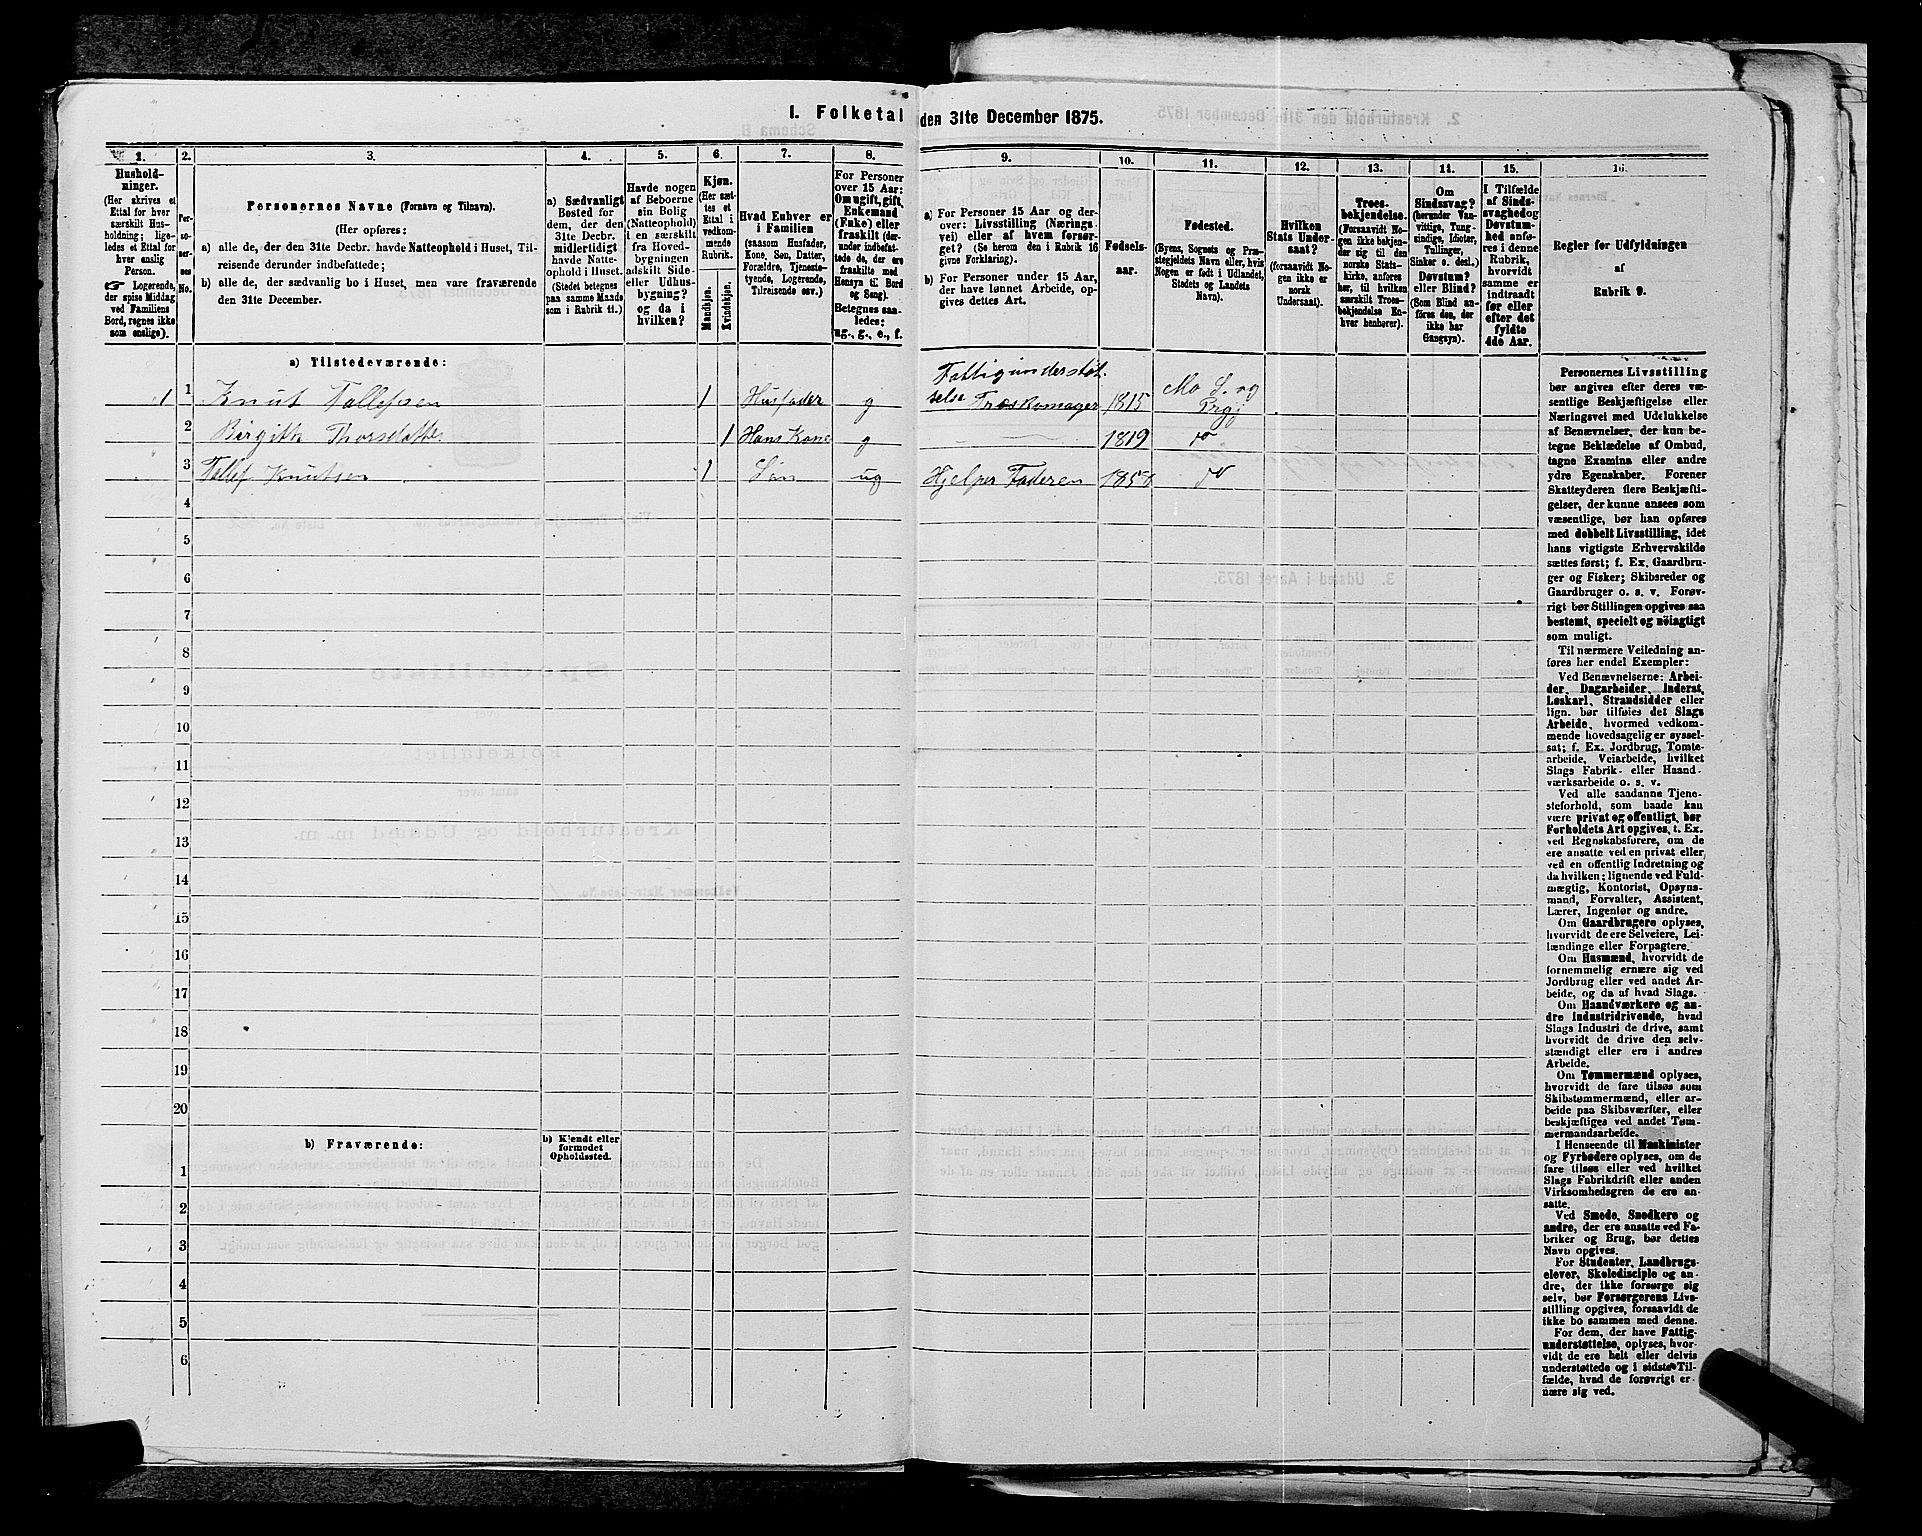 I. Folketal den 31te December 1875.
1. 2. 3. 4. 5. 6. 7. 8. 9. 10. 11. 12. 13. 14. 15. 16.
Hushold-
ninger.
(Her skrives et
Ettal for hver
særskilt Hus-
holdning; lige-
ledes et Ettal for
hver enslig
Person.
☞ Logerende,
der spise Middag
ved Familiens
Bord, regnes ikke
som enslige).
Per-
so-
ner-
nes
No.
Personernes Navne (Fornavn og Tilnavn).
(Her opføres:
a) alle de, der den 31te Decbr. havde Natteophold i Huset, Til-
reisende derunder indbefattede;
b) alle de, der sædvanlig bo i Huset, men vare fraværende
den 31te December.
a) Sædvanligt
Bosted for
dem, der den
31te Decbr.
midlertidigt
havde Natte-
ophold i Huset.
(Stedet betegnes
paa samme Maade
som i Rubrik 11.)
Havde nogen
af Beboerne
sin Bolig
(Natteophold)
i en særskilt
fra Hoved-
bygningen
adskilt Side-
eller Udhus-
bygning?
og da i
hvilken?
Kjøn.
(Her sæt-
tes et
Ettal i
vedkom-
mende
Rubrik.
Mandkjøn.
Kvindekjøn.
Hvad Enhver er
i Familien
(saasom Husfader,
Kone, Søn, Datter,
Forældre, Tjeneste-
tyende, Logerende,
Tilreisende osv.)
For Personer
over 15 Aar:
Om ugift, gift,
Enkemand
(Enke) eller
fraskilt (der-
under indbefat-
tede de, der ere
fraskilte med
Hensyn til Bord
og Seng).
Betegnes saa-
ledes:
ug., g., e., f.
a) For Personer 15 Aar og der-
over: Livsstilling (Nærings-
vei) eller af hvem forsør-
get? (Se herom den i Rubrik 16
givne Forklaring).
b) For Personer under 15 Aar,
der have lønnet Arbeide, op-
gives dettes Art.
Fødsels-
aar.
Fødested.
(Byens, Sognets og Præ-
stegjeldets Navn eller, hvis
Nogen er født i Udlandet,
Stedets og Landets
Navn).
Hvilken
Stats Under-
saat?
(forsaavidt No-
gen ikke er
norsk
Undersaat).
Troes-
bekjendelse.
(Forsaavidt No-
gen ikke bekjen-
der sig til den
norske Stats-
kirke, anføres
her, til hvilken
særskilt Troes-
bekjendelse En-
hver henhører).
Om
Sindssvag?
(herunder Van-
vittige, Tung-
sindige, Idioter,
Tullinger,
Sinker o. desl.)
Døvstum?
eller Blind?
(Som Blind an-
føres den, der
ikke har
Gangsyn).
I Tilfælde
af Sinds-
svaghed og
Døvstum-
hed anfø-
res i denne
Rubrik,
hvorvidt
samme er
indtraadt
før eller
efter det
fyldte
4de Aar.
Regler for Udfyldningen
af
Rubrik 9.
a) Tilstedeværende:
1 1 Knut Tallefsen 1 Husfader g Fattigunderstøt-
telse Træskomager 1815 Mo S. og
Prgj
2 Birgith Thorsdatter 1 Hans Kone g — 1819 do
3 Tallef Knutsen 1 Søn ug Hjelper Faderen 1858 do
4
5
6
7
8
9
10
11
12
13
14
15
16
17
18
19
20
b) Fraværende:
b) Kjendt eller
formodet
Opholdssted.
1
2
3
4
5
6
Personernes Livsstilling
bør angives efter deres væ-
sentlige Beskjæftigelse eller
Næringsvei med Udelukkelse
af Benævnelser, der kun be-
tegne Beklædelse af Ombud,
tagne Examina eller andre
ydre Egenskaber. Forener
Skatteyderen flere Beskjæfti-
gelser, der kunne ansees som
væsentlige, bør han opføres
med dobbelt Livsstilling, idet
hans vigtigste Erhvervskilde
sættes først; f. Ex. Gaardbru-
ger og Fisker; Skibsreder og
Gaardbruger o. s. v. Forøv-
rigt bør Stillingen opgives saa
bestemt, specielt og nøiagtigt
som muligt.
Til nærmere Veiledning an-
føres her endel Exempler:
Ved Benævnelserne: Arbei-
der, Dagarbeider, Inderst,
Løskarl, Strandsidder eller
lign. bør tilføies det Slags
Arbeide, hvormed vedkom-
mende hovedsagelig er syssel-
sat; f. Ex. Jordbrug, Tomte-
arbeide, Veiarbeide, hvilket
Slags Fabrik- eller Haand-
værksarbeide o. s. v.
Ved alle saadanne Tjene-
steforhold, som baade kan
være privat og offentligt, bør
Forholdets Art opgives, t. Ex.
ved Regnskabsførere, om de
ere ansatte ved en privat eller
ved en offentlig Indretning og
da hvilken; lignende ved Fuld-
mægtig, Kontorist, Opsyns-
mand, Forvalter, Assistent,
Lærer, Ingeniør og andre.
Om Gaardbrugere oplyses,
hvorvidt de ere Selveiere, Lei-
lændinge eller Forpagtere.
Om Husmænd, hvorvidt de
fornemmelig ernære sig ved
Jordbrug eller ved andet Ar-
beide, og da af hvad Slags.
Om Haandværkere og an-
dre Industridrivende, hvad
Slags Industri de drive, samt
hvorvidt de drive den selv-
stændigt eller ere i andres
Arbeide.
Om Tømmermænd oplyses,
hvorvidt de fare tilsøs som
Skibstømmermænd, eller ar-
beide paa Skibsværfter, eller
beskjæftiges ved andet Tøm-
mermandsarbeide.
I Henseende til Maskinister
og Fyrbødere oplyses, om de
fare tilsøs eller ved hvilket
Slags Fabrikdrift eller anden
Virksomhedsgren de ere an-
satte.
Ved Smede, Snedkere og
andre, der ere ansatte ved Fa-
briker og Brug, bør dettes
Navn opgives.
For Studenter, Landbrugs-
elever, Skoledisciple og an-
dre, der ikke forsørge sig
selv, bør Forsørgerens Livs-
stilling opgives, forsaavidt de
ikke bo sammen med denne.
For dem, der have Fattig-
understøttelse, oplyses, hvor-
vidt de ere helt eller delvis
understøttede og i sidste Til-
fælde, hvad de forøvrigt er-
nære sig ved.